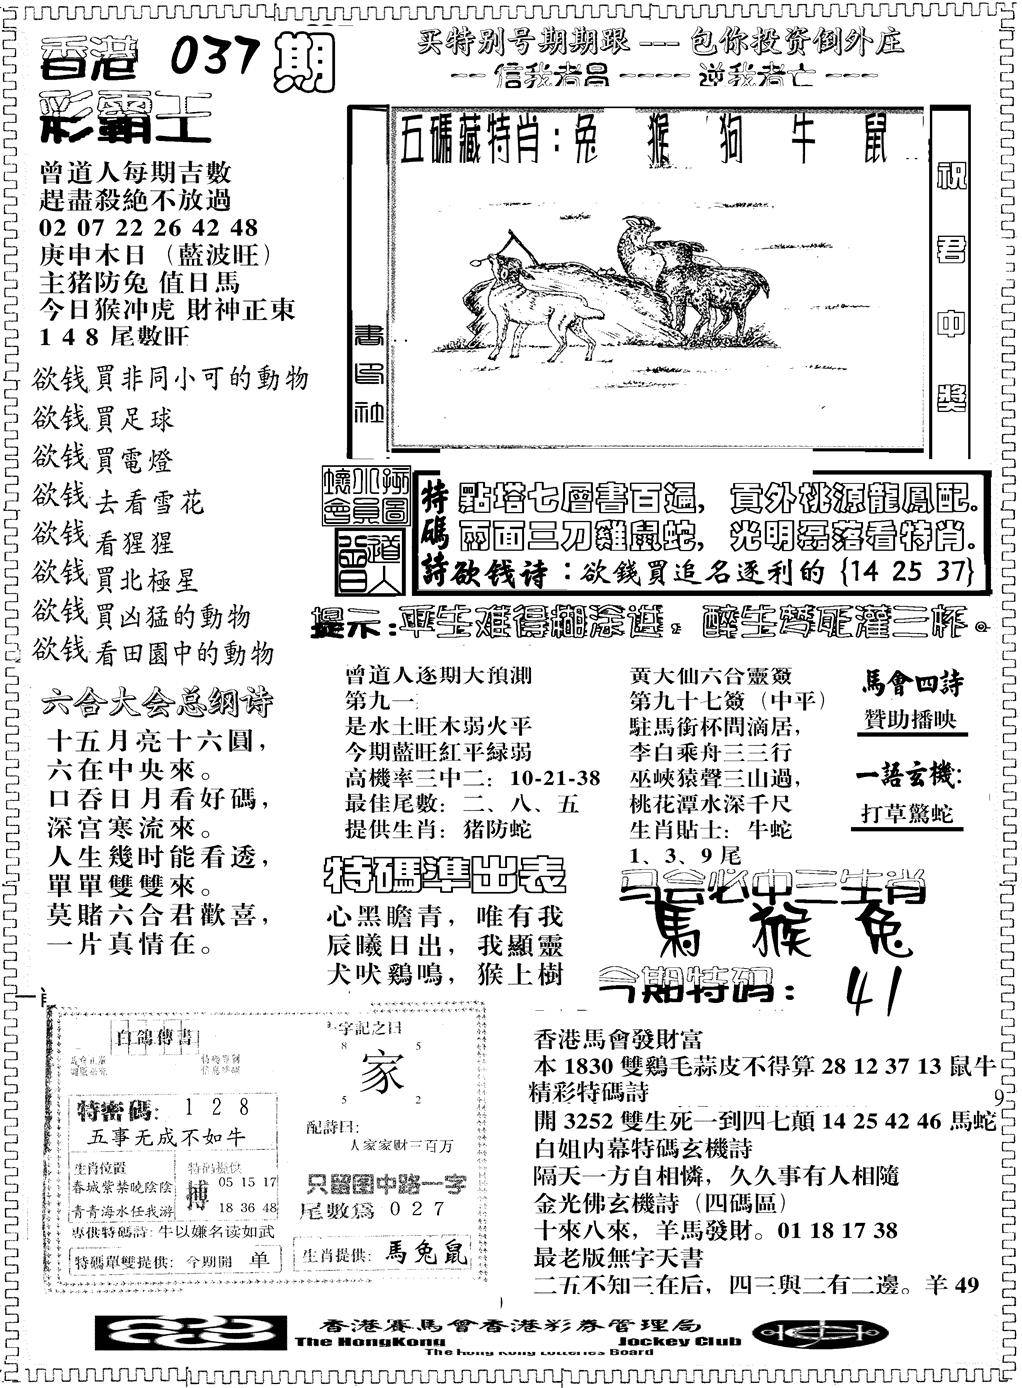 香港 037 期
彩霸王
买特别号期期跟 --- 包你投资倒外庄
-- 信我者昌 ---- 逆我者亡 ---
曾道人每期吉數
趕盡殺絕不放過
02 07 22 26 42 48
庚申木日（藍波旺）
主猪防兔 值日馬
今日猴冲虎 財神正東
1 4 8 尾數旺
五碼藏特肖：兔 猴 狗 牛 鼠
祝君中獎
欲钱買非同小可的動物
欲钱買足球
欲钱買電燈
欲钱去看雪花
欲钱看猩猩
欲钱買北極星
欲钱買凶猛的動物
欲钱看田園中的動物
曾道人
特碼詩
點塔七層書百遍，貢外桃源龍鳳配.
兩面三刀雞鼠蛇，光明磊落看特肖.
欲钱诗：欲錢買追名逐利的 {14 25 37}
提示:平生难得糊涂逃。醉生梦死灌三杯。
六合大会总纲诗
十五月亮十六圓，
六在中央來。
口吞日月看好碼，
深宫寒流來。
人生幾时能看透，
單單雙雙來。
莫賭六合君歡喜，
一片真情在。
曾道人逐期大預測
第九一
是水土旺木弱火平
今期藍旺紅平緑弱
高機率三中二：10-21-38
最佳尾數：二、八、五
提供生肖：猪防蛇
黄大仙六合靈簽
第九十七簽（中平）
駐馬銜杯問滴居，
李白乘舟三三行
巫峽猿聲三山過，
桃花潭水深千尺
生肖貼士：牛蛇
1、3、9 尾
馬會四詩
贊助播映
一語玄機：
打草驚蛇
特碼準出表
心黑瞻青，唯有我
辰曦日出，我顯靈
犬吠鷄鳴，猴上樹
马会必中三生肖
馬 猴 兔
今期特码：41
白鴿傳書
特密碼：1 2 8
五事无成不如牛
生肖位置
春城紫禁晚陰陰
青青海水任我游
特码提供
搏
05 15 17
18 36 48
專供特碼詩：牛以嫌名读如武
特碼單雙提供：今期開 单
一字記之曰
8 5
家
5 2
配詩曰：
人家家财三百万
只留图中路一字
尾數爲 0 2 7
生肖提供：馬兔鼠
香港馬會發財富
本 1830 雙鷄毛蒜皮不得算 28 12 37 13 鼠牛
精彩特碼詩
開 3252 雙生死一到四七顛 14 25 42 46 馬蛇
白姐内幕特碼玄機詩
隔天一方自相憐，久久事有人相隨
金光佛玄機詩（四碼區）
十來八來，羊馬發財。01 18 17 38
最老版無字天書
二五不知三在后，四三與二有二邊。羊 49
9
香港賽馬會香港彩券管理局
The HongKong Jockey Club
The Hong Kong Lotteries Board